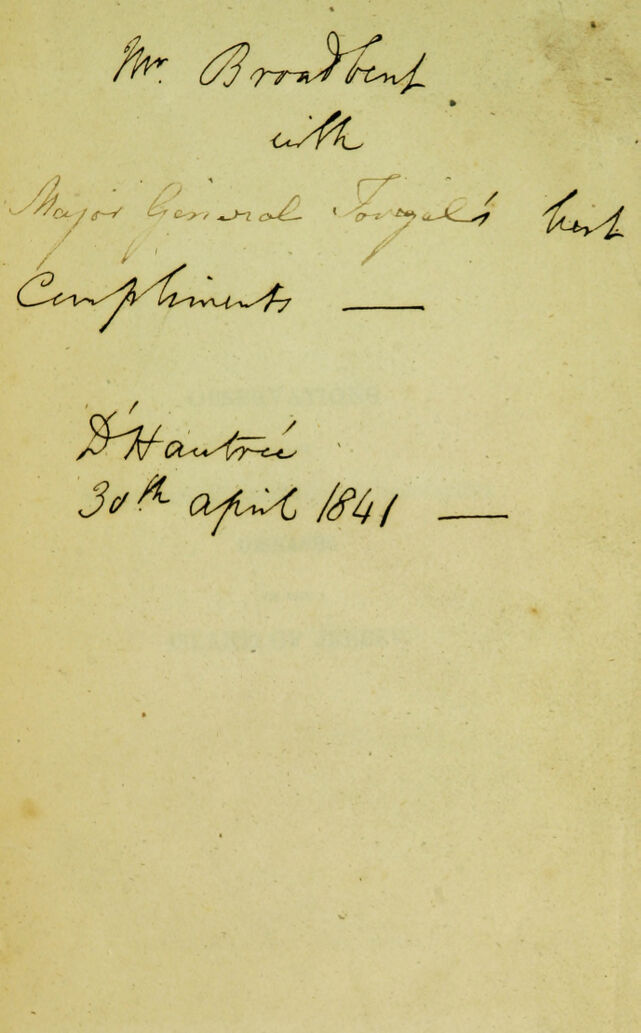 Mr. Broadbent
with
Major General Touzel's best
Compliments —
D'Hautrée
30th april 1841 —